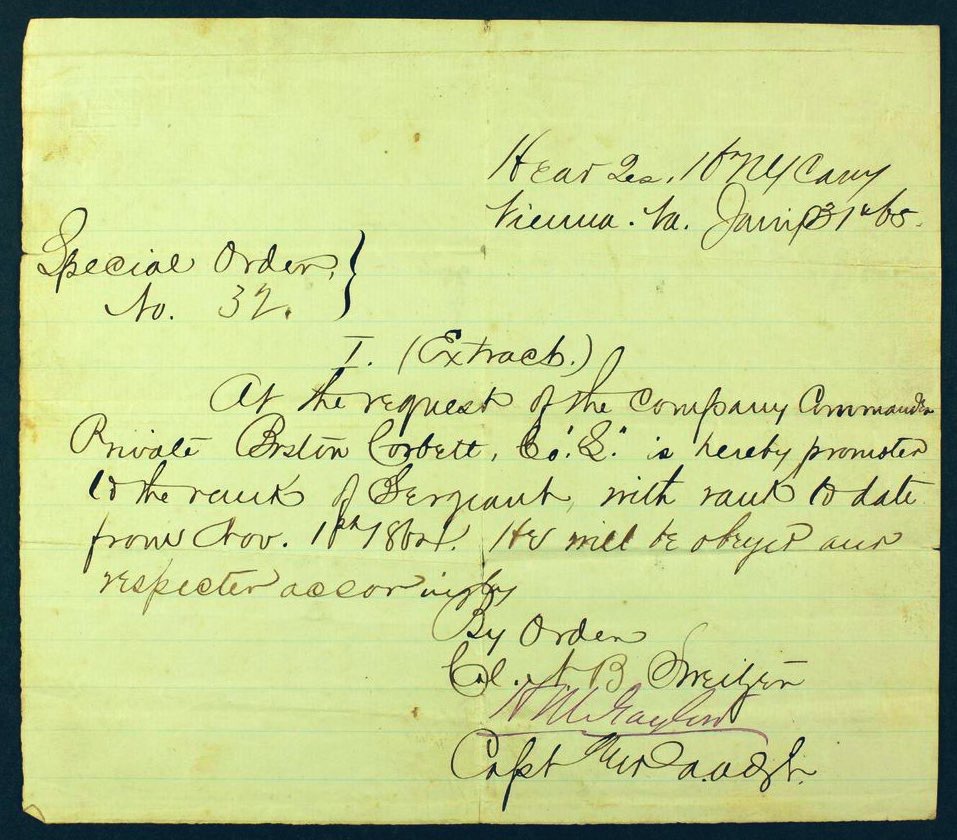 Head Qrs. 16th NY Cavy
Vienna. Va. Jany 31st 65.
Special Order,
No. 32.
I. (Extract.)
At the request of the Company Commander
Private Boston Corbett, Co. "L" is hereby promoted
to the rank of Sergeant, with rank to date
from Nov. 1864. He will be obeyed and
respected accordingly
By Order
Col. N. B. Sweitzer
Capt and a.a.a.g.